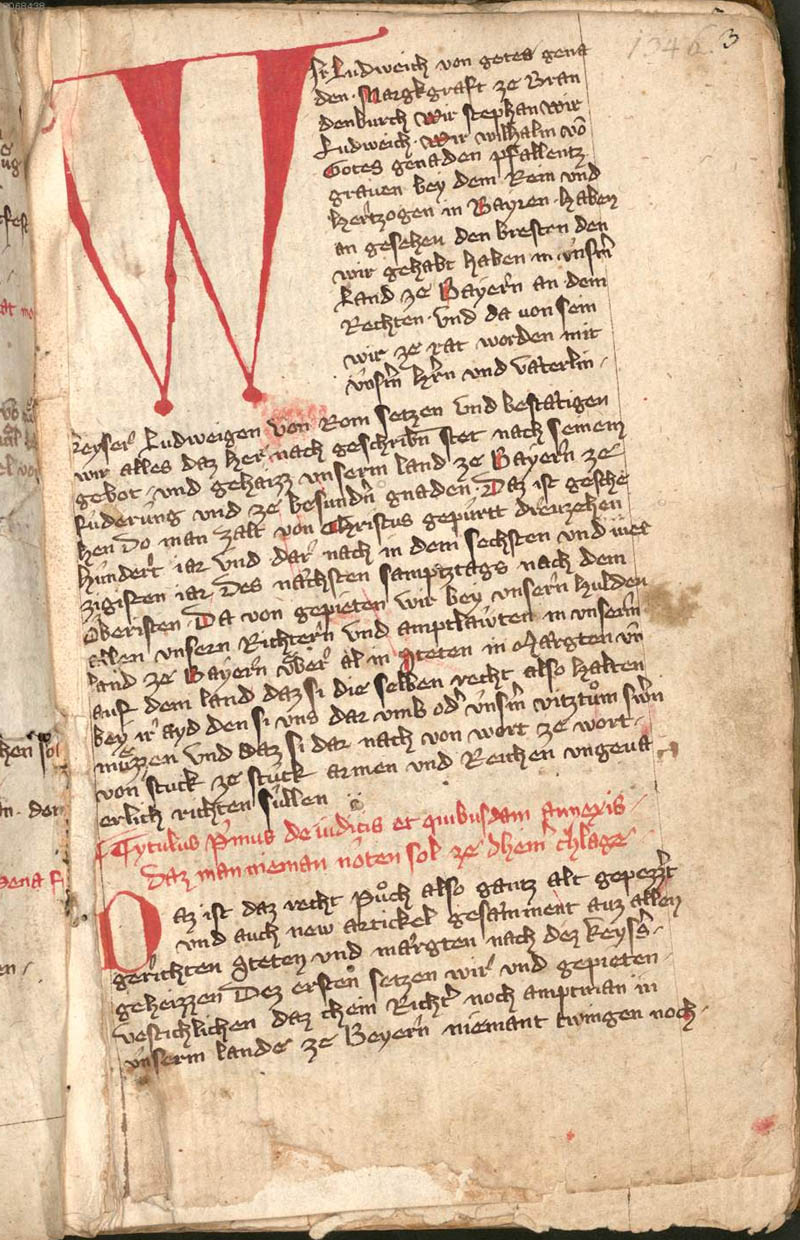 1346. 3
Wir Ludweich von gotes gena
den Margkgraft ze Bran
denburch Wir stephan wir
Ludweich. Wir wilhalm võ
Gotes genaden pfallentz
graven bey dem Rein vnd
hertzogen in Bayren. haben
an gesehen den bresten den
wir gehabt haben in vnsm̄
Land ze Bayern an dem
Rechten. vnd da von sein
wir ze rat worden mit
vnsm̄ hrn vnd vaterlin
keyser Ludweigen von Rom setzen vnd bestatigen
wir alles daz her nach geschribñ stet nach seinem
gebot. vnd gehaizz vnserm land ze Bayern ze
fuderung vnd ze besundñ gnaden. Daz ist gesche
hen do man zalt von Christus gepurtt dreuzehen
hundert iar vnd dar nach in dem sechsten vnd vier
zigisten iar des nachsten samptztags nach dem
Oberisten. Da von gepieten wir bey vnsern hulden
allen vnsern Richtern vnd amptlawten in vnserm
land ze Bayern vber al in steten in Margten vñ
auf dem land daz si die selben recht also halten
bey ir ayd den si vns dar vmb od' vnsm̄ vitztum swn̄
muzzen vnd daz si dar nach von wort ze wort
von stuck ze stuck armen vnd Reichen vngeua
erlich richten sullen
Tytulus p'mus de iudicis et quibusdam annexis
daz man nieman noten sol ze dheinr chlage
Daz ist daz recht puch also gantz alt gepezz't
vnd auch new artickel gesamment auz allen
gerichten steten vnd margten nach dez keys's
geheizzen Dez ersten setzen wir vnd gepieten
vestichlichen daz chein Richt' noch amptman in
vnserm lande ze Beyern niemant twingen noch